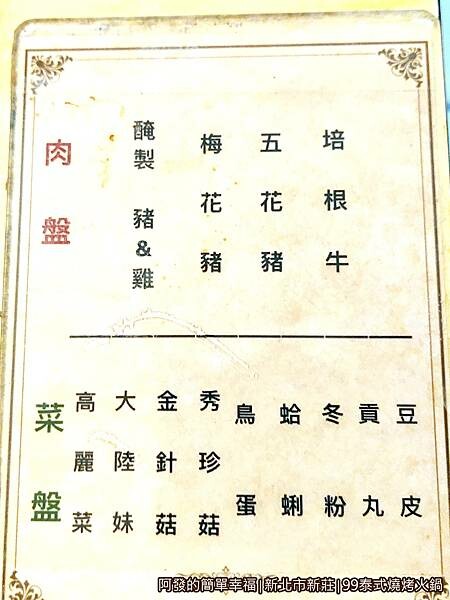 肉盤
醃製豬&雞
梅花豬
五花豬
培根牛
菜盤
高麗菜
大陸妹
金針菇
秀珍菇
鳥蛋
蛤蜊
冬粉
貢丸
豆皮
阿發的簡單幸福|新北市新莊|99泰式燒烤火鍋